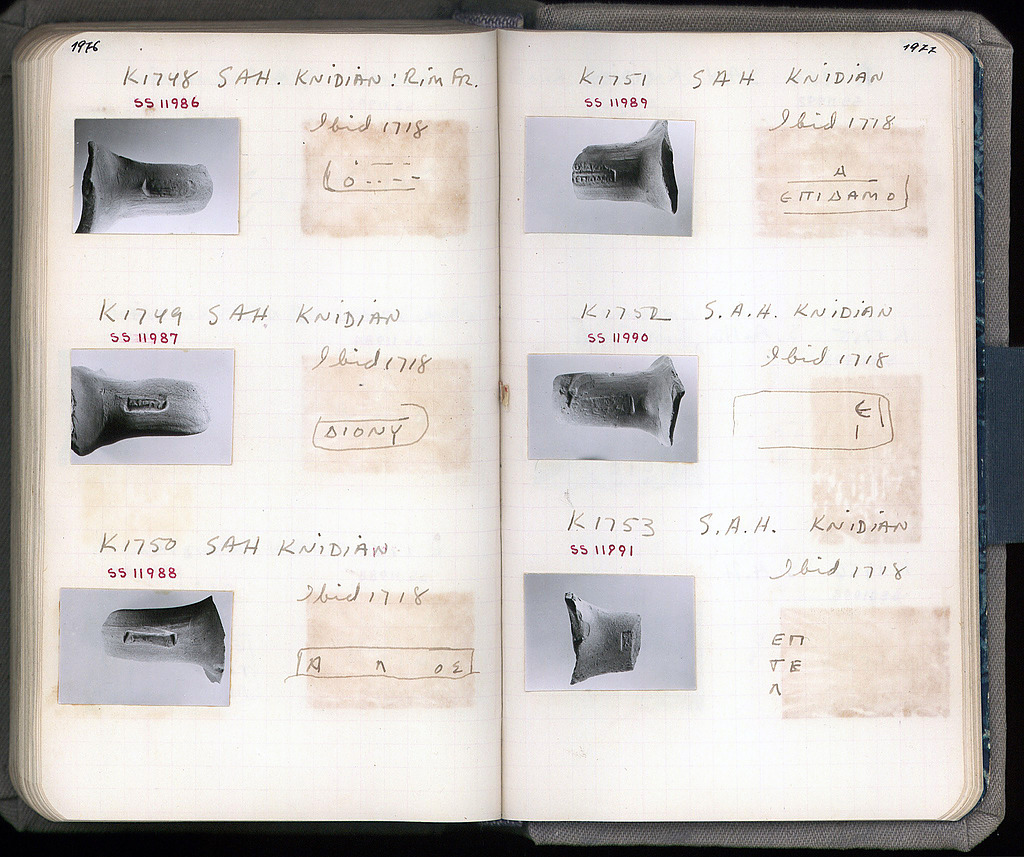 1976
K1748 SAH. KNIDIAN: RIM FR.
SS 11986
Ibid 1718
K1749 SAH KNIDIAN
SS 11987
Ibid 1718
ΔΙΟΝΥ
K1750 SAH KNIDIAN
SS 11988
Ibid 1718
Α Π ΟΣ
1977
K1751 SAH KNIDIAN
SS 11989
Ibid 1718
Α
ЄΠΙΔΑΜΟ
K1752 S.A.H. KNIDIAN
SS 11990
Ibid 1718
Є
Ι
K1753 S.A.H. KNIDIAN
SS 11991
Ibid 1718
ΕΠ
ΤΕ
Λ